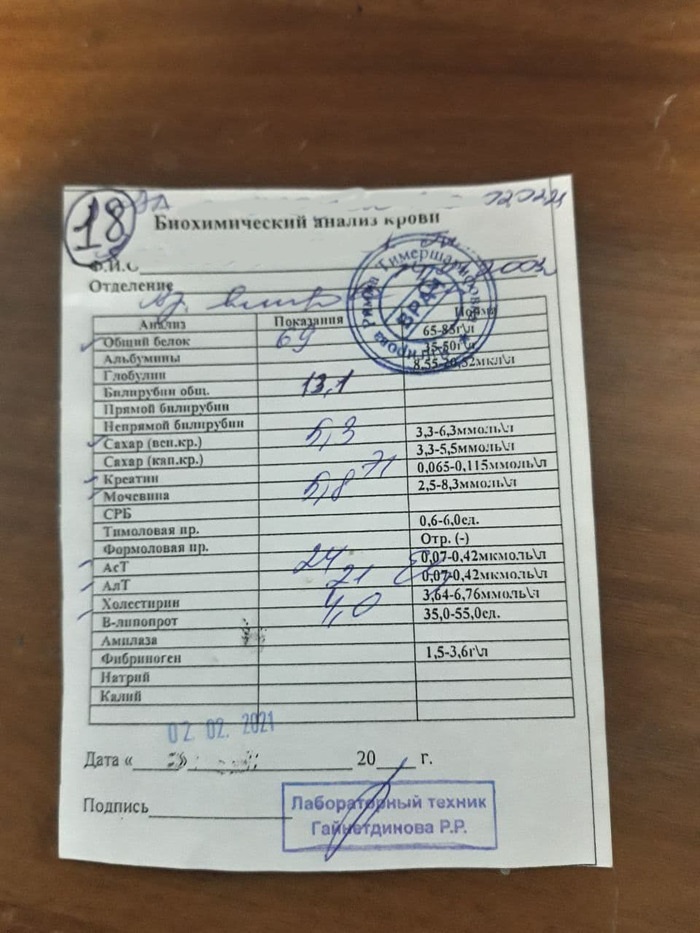 18
Биохимический анализ крови
Ф.И.О
Отделение
Анализ Показания Норма
Общий белок 69 65-85г\л
Альбумины 35-50г\л
Глобулин 8,55-20,52мкл\л
Билирубин общ. 13,1
Прямой билирубин
Непрямой билирубин
Сахар (вен.кр.) 5,3 3,3-6,3ммоль\л
Сахар (кап.кр.) 3,3-5,5ммоль\л
Креатин 71 0,065-0,115ммоль\л
Мочевина 5,8 2,5-8,3ммоль\л
СРБ
Тимоловая пр. 0,6-6,0ед.
Формоловая пр. Отр. (-)
АсТ 24 0,07-0,42мкмоль\л
АлТ 21 0,07-0,42мкмоль\л
Холестирин 4,0 3,64-6,76ммоль\л
В-липопрот 35,0-55,0ед.
Амилаза
Фибриноген 1,5-3,6г\л
Натрий
Калий
02. 02. 2021
Дата « 20 г.
Подпись
Лабораторный техник
Гайнетдинова Р.Р.
ВРАЧ